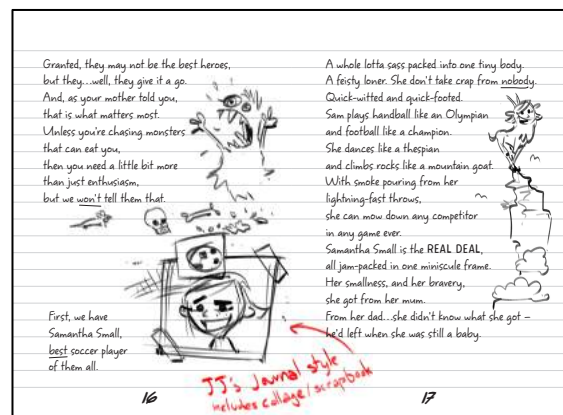 Granted, they may not be the best heroes,
but they...well, they give it a go.
And, as your mother told you,
that is what matters most.
Unless you're chasing monsters
that can eat you,
then you need a little bit more
than just enthusiasm,
but we won't tell them that.
First, we have
Samantha Small,
best soccer player
of them all.
16
A whole lotta sass packed into one tiny body.
A feisty loner. She don't take crap from nobody.
Quick-witted and quick-footed.
Sam plays handball like an Olympian
and football like a champion.
She dances like a thespian
and climbs rocks like a mountain goat.
With smoke pouring from her
lightning-fast throws,
she can mow down any competitor
in any game ever.
Samantha Small is the REAL DEAL,
all jam-packed in one miniscule frame.
Her smallness, and her bravery,
she got from her mum.
From her dad...she didn't know what she got –
he'd left when she was still a baby.
JJ's Journal style
includes collage/scrapbook
17